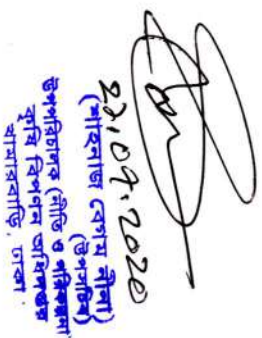 ২১.০৭.২০২০
(শাহনাজ বেগম নীনা)
(উপসচিব)
উপপরিচালক (নীতি ও পরিকল্পনা)
কৃষি বিপণন অধিদপ্তর
খামারবাড়ি, ঢাকা।